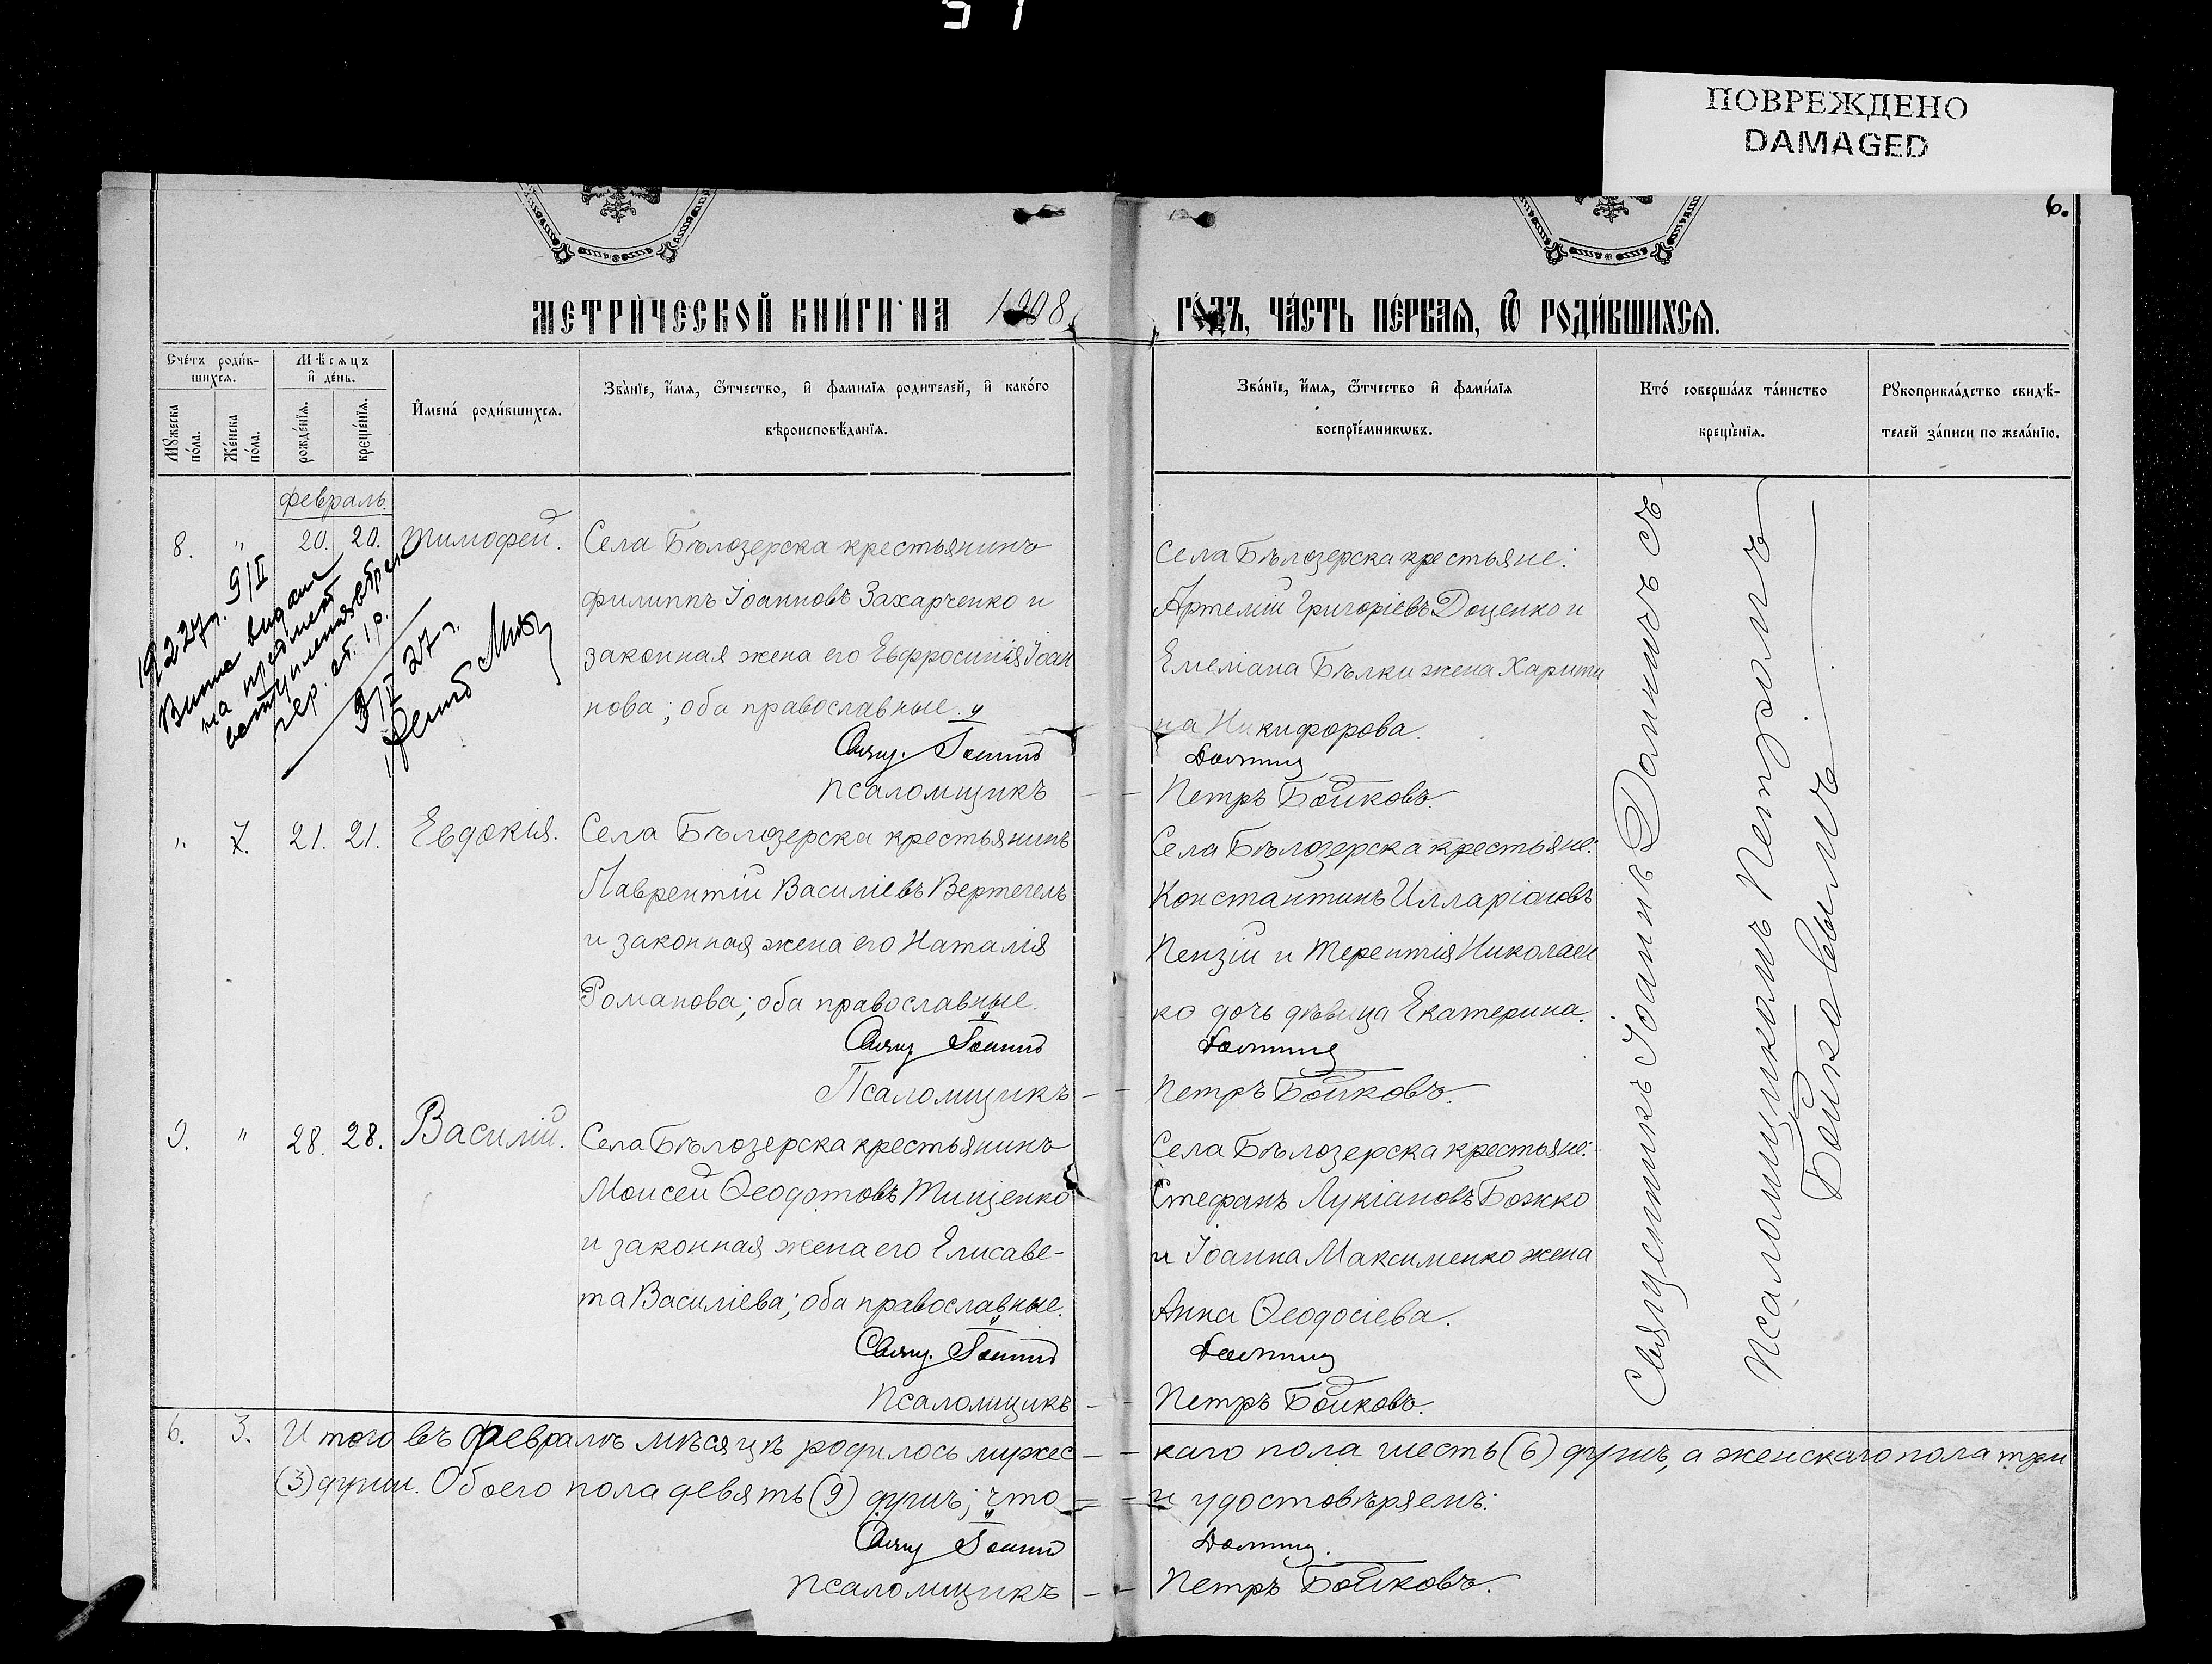 ПОВРЕЖДЕНО
DAMAGED
6.
МЕТРИЧЕСКОЙ КНИГИ НА 1908 ГОДЪ, ЧАСТЬ ПЕРВАЯ, Ѿ РОДИВШИХСЯ.
Счетъ родившихся.
Мѣсяцъ и день.
Мужеска пола.
Женска пола.
рожденія.
крещенія.
Имена родившихся.
Званіе, имя, ѿтчество, и фамилія родителей, и какого
вѣроисповѣданія.
Званіе, имя, ѿтчество и фамилія
воспріемникѡвъ.
Кто совершалъ таинство
крещенія.
Рукоприкладство свидѣ-
телей записи по желанію.
Февраль.
8. " 20. 20. Тимофей.
Села Бѣлозерска крестьянинъ
Филиппъ Іоанновъ Захарченко и
законная жена его Евфросинія Іоан
нова; оба православные.
Свящ. Іоаннъ
Псаломщикъ
Села Бѣлозерска крестьяне:
Артемій Григоріевъ Доценко и
Емеліана Бѣлки жена Харити
на Никифорова.
Петръ Бойковъ.
9/II
27 г.
" 7. 21. 21. Евдокія.
Села Бѣлозерска крестьянинъ
Лаврентій Василіевъ Вертегелъ
и законная жена его Наталія
Романова; оба православные.
Свящ. Іоаннъ
Псаломщикъ
Села Бѣлозерска крестьяне:
Константинъ Илларіоновъ
Пензій и Терентія Николаен
ко дочь дѣвица Екатерина.
Петръ Бойковъ.
9. " 28. 28. Василій.
Села Бѣлозерска крестьянинъ
Моисей Ѳеодотовъ Тищенко
и законная жена его Елисаве-
та Василіева; оба православные.
Свящ. Іоаннъ
Псаломщикъ
Села Бѣлозерска крестьяне:
Стефанъ Лукіановъ Божко
и Іоанна Максименко жена
Анна Ѳеодосіева.
Петръ Бойковъ.
Священникъ Іоаннъ съ
Псаломщикомъ Петромъ
Бойковымъ
6. 3. Итого въ Февралѣ мѣсяцѣ родилось мужес- - каго пола шесть (6) душъ, а женскаго пола три
(3) души. Обоего пола девять (9) душъ; что = - и удостовѣряемъ:
Свящ Іоаннъ
Псаломщикъ - - Петръ Бойковъ.